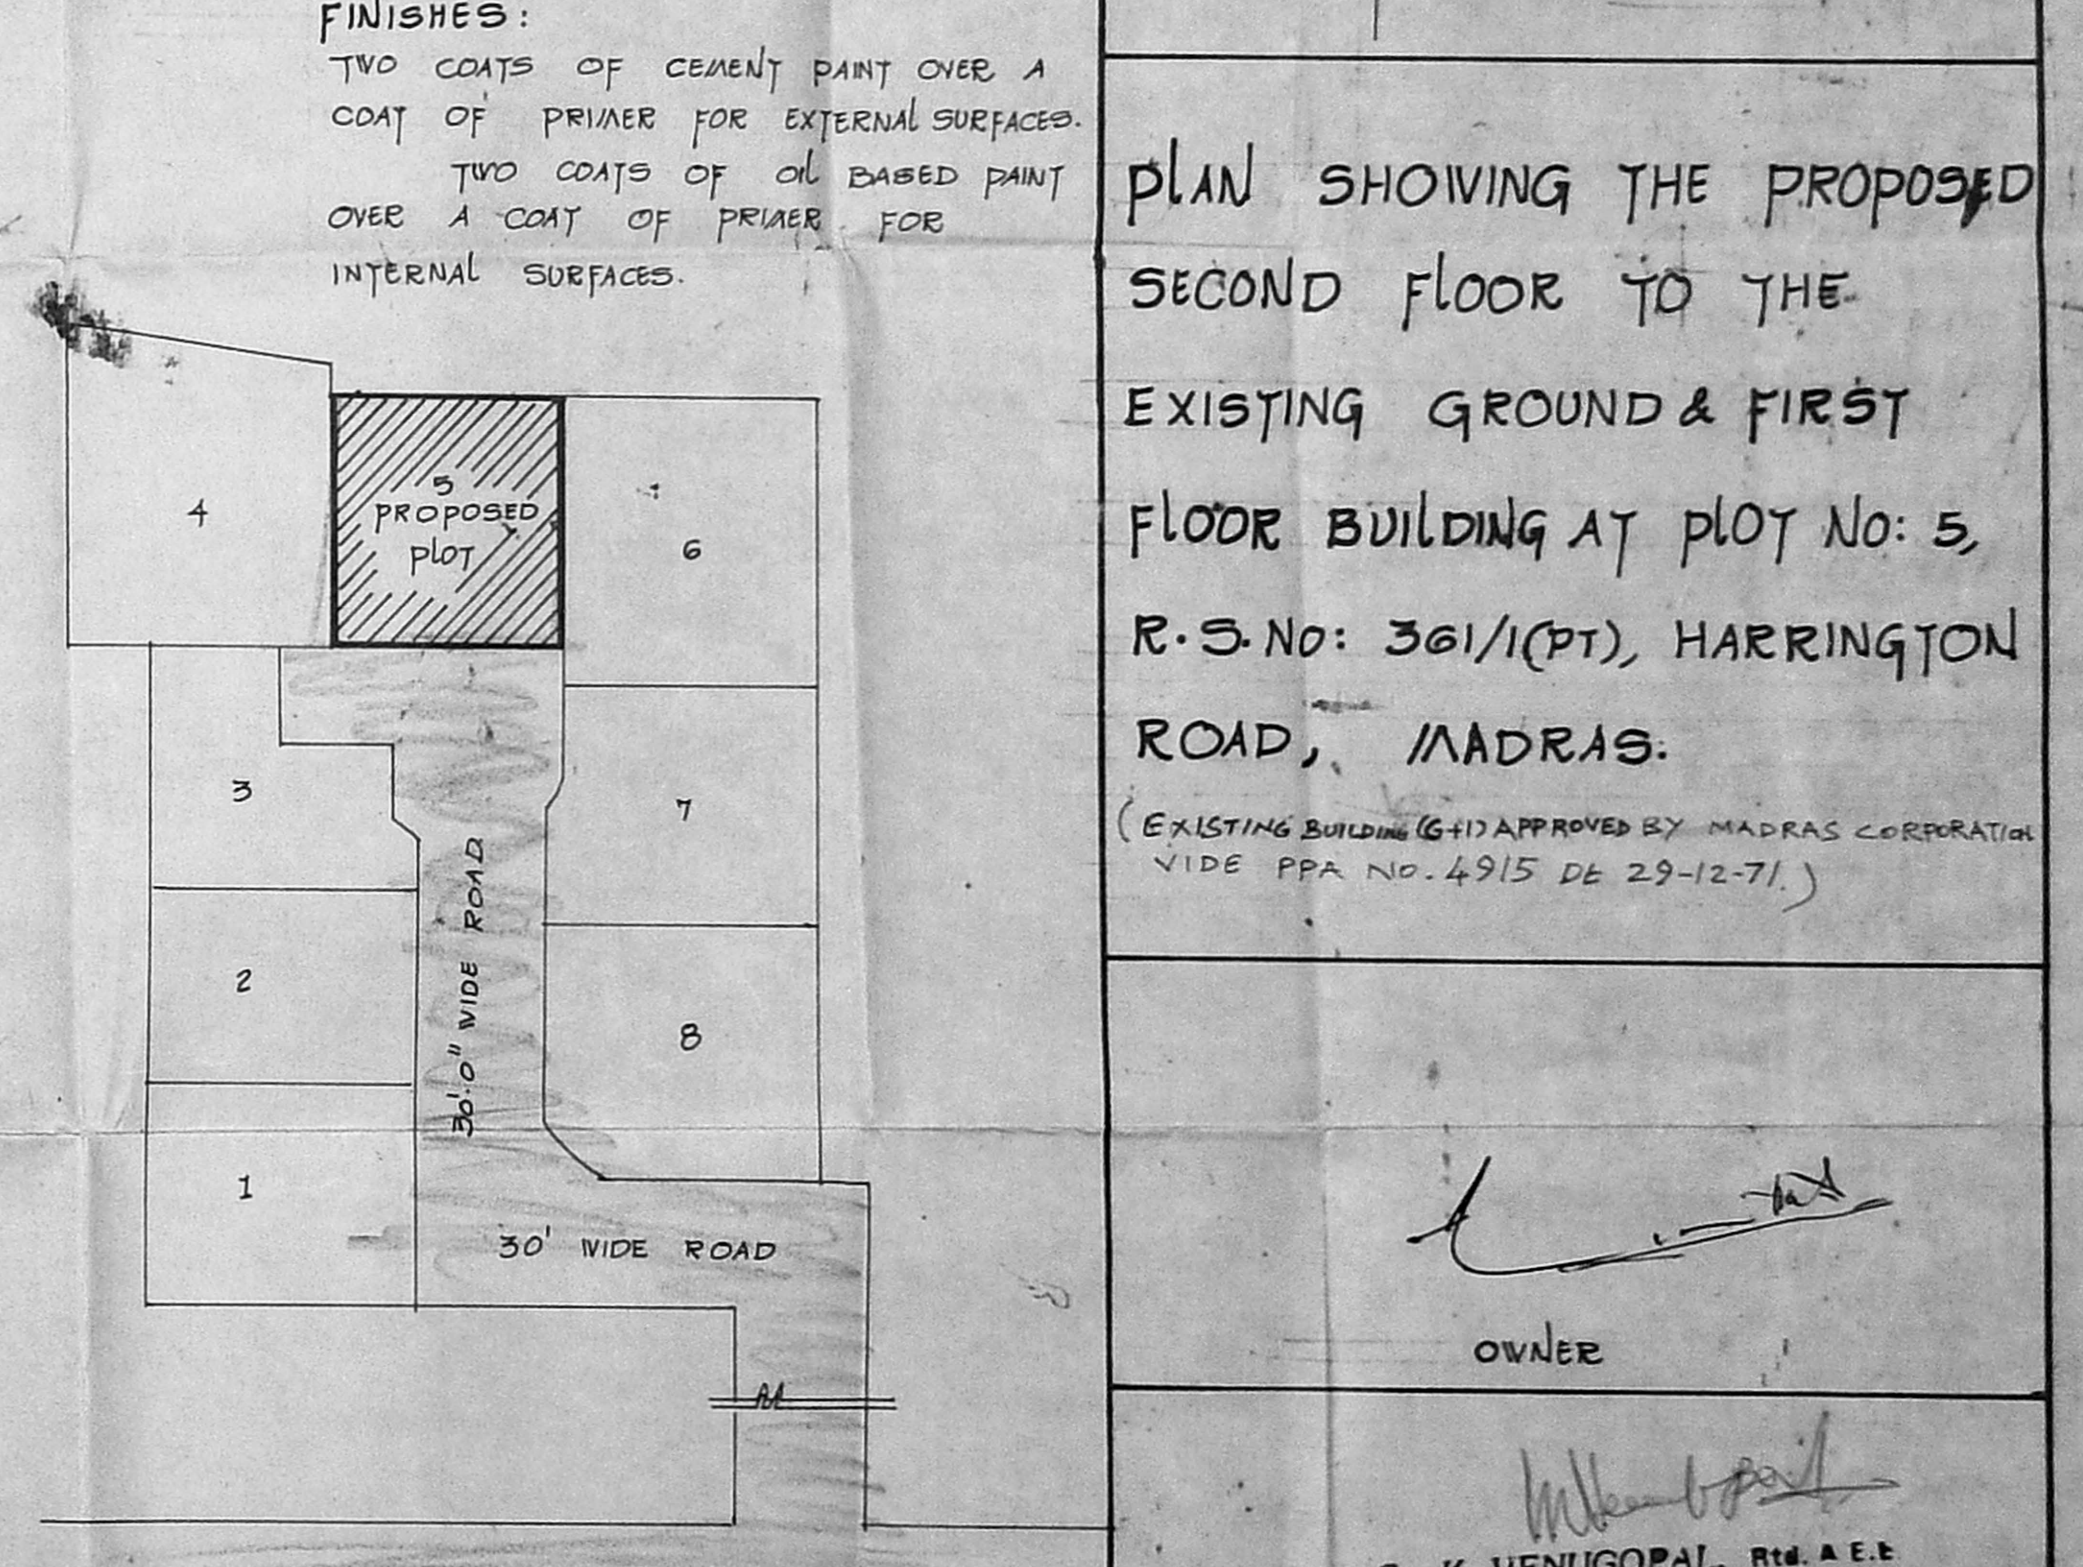 FINISHES:
TWO COATS OF CEMENT PAINT OVER A
COAT OF PRIMER FOR EXTERNAL SURFACES.
TWO COATS OF OIL BASED PAINT
OVER A COAT OF PRIMER FOR
INTERNAL SURFACES.
4
5
PROPOSED
PLOT
6
3
7
2
8
1
30'.0" WIDE ROAD
30' WIDE ROAD
PLAN SHOWING THE PROPOSED
SECOND FLOOR TO THE
EXISTING GROUND & FIRST
FLOOR BUILDING AT PLOT NO: 5,
R.S.NO: 361/1(PT), HARRINGTON
ROAD, MADRAS.
(EXISTING BUILDING (G+1) APPROVED BY MADRAS CORPORATION
VIDE PPA NO. 4915 Dt 29-12-71.)
OWNER
K. VENUGOPAL, Rtd. A.E.E